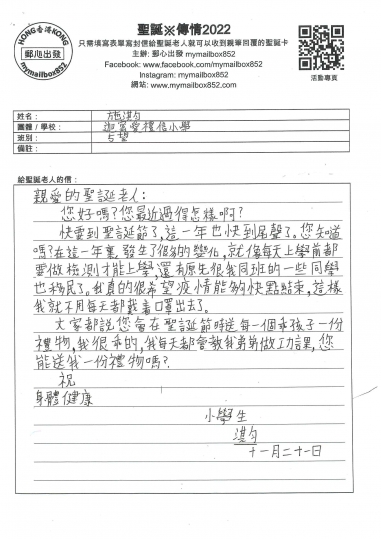 HONG KONG 香港
郵心出發
mymailbox852
聖誕※傳情2022
只需填寫表單寫封信給聖誕老人就可以收到親筆回覆的聖誕卡
主辦: 郵心出發 mymailbox852
Facebook: www.facebook.com/mymailbox852
Instagram: mymailbox852
網站: www.mymailbox852.com
活動專頁
姓名:
施淇勻
團體 / 學校:
迦密愛禮信小學
班別:
5望
備註:
給聖誕老人的信:
親愛的聖誕老人:
您好嗎?您最近過得怎樣啊?
快要到聖誕節了,這一年也快到尾聲了。您知道
嗎?在這一年裏,發生了很多的變化,就像每天上學前都
要做檢測才能上學,還有原先很我同班的一些同學
也移民了。我真的很希望疫情能夠快點結束,這樣
我就不用每天都戴着口罩出去了。
大家都說您會在聖誕節時送每一個乖孩子一份
禮物,我很乖的,我每天都會教我弟弟做功課,您
能送我一份禮物嗎?
祝
身體健康
小學生
淇勻
十一月二十一日